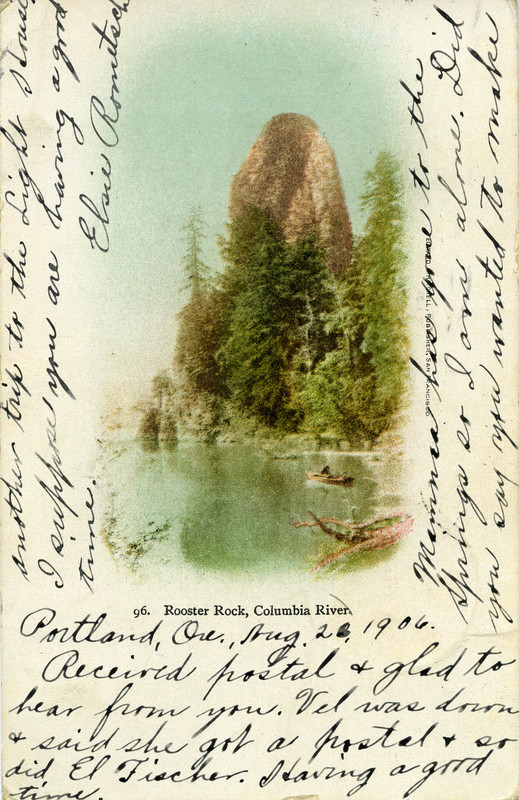 96. Rooster Rock, Columbia River.
Portland, Ore., Aug. 1906.
Received postal & glad to
hear from you. Vel was down
& said she got a postal & so
did El Fischer. Having a good
time.
Mamma has gone to the
Springs so I am alone. Did
you say you wanted to make
another trip to the Light House
I suppose you are having a good
time.
Elsie
PUBLISHER, SAN FRANCISCO